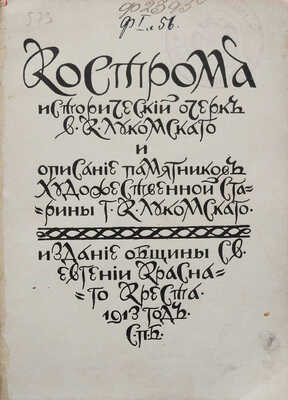 573
Ф2395
Ф I. 56.
Кострома
исторический очеркъ
В. К. Лукомскаго
и
описание памятниковъ
художественной ста-
=рины Г. К. Лукомскаго.
издание общины св.
евгении красна-
го креста.
1913 годъ.
С.П.Б.